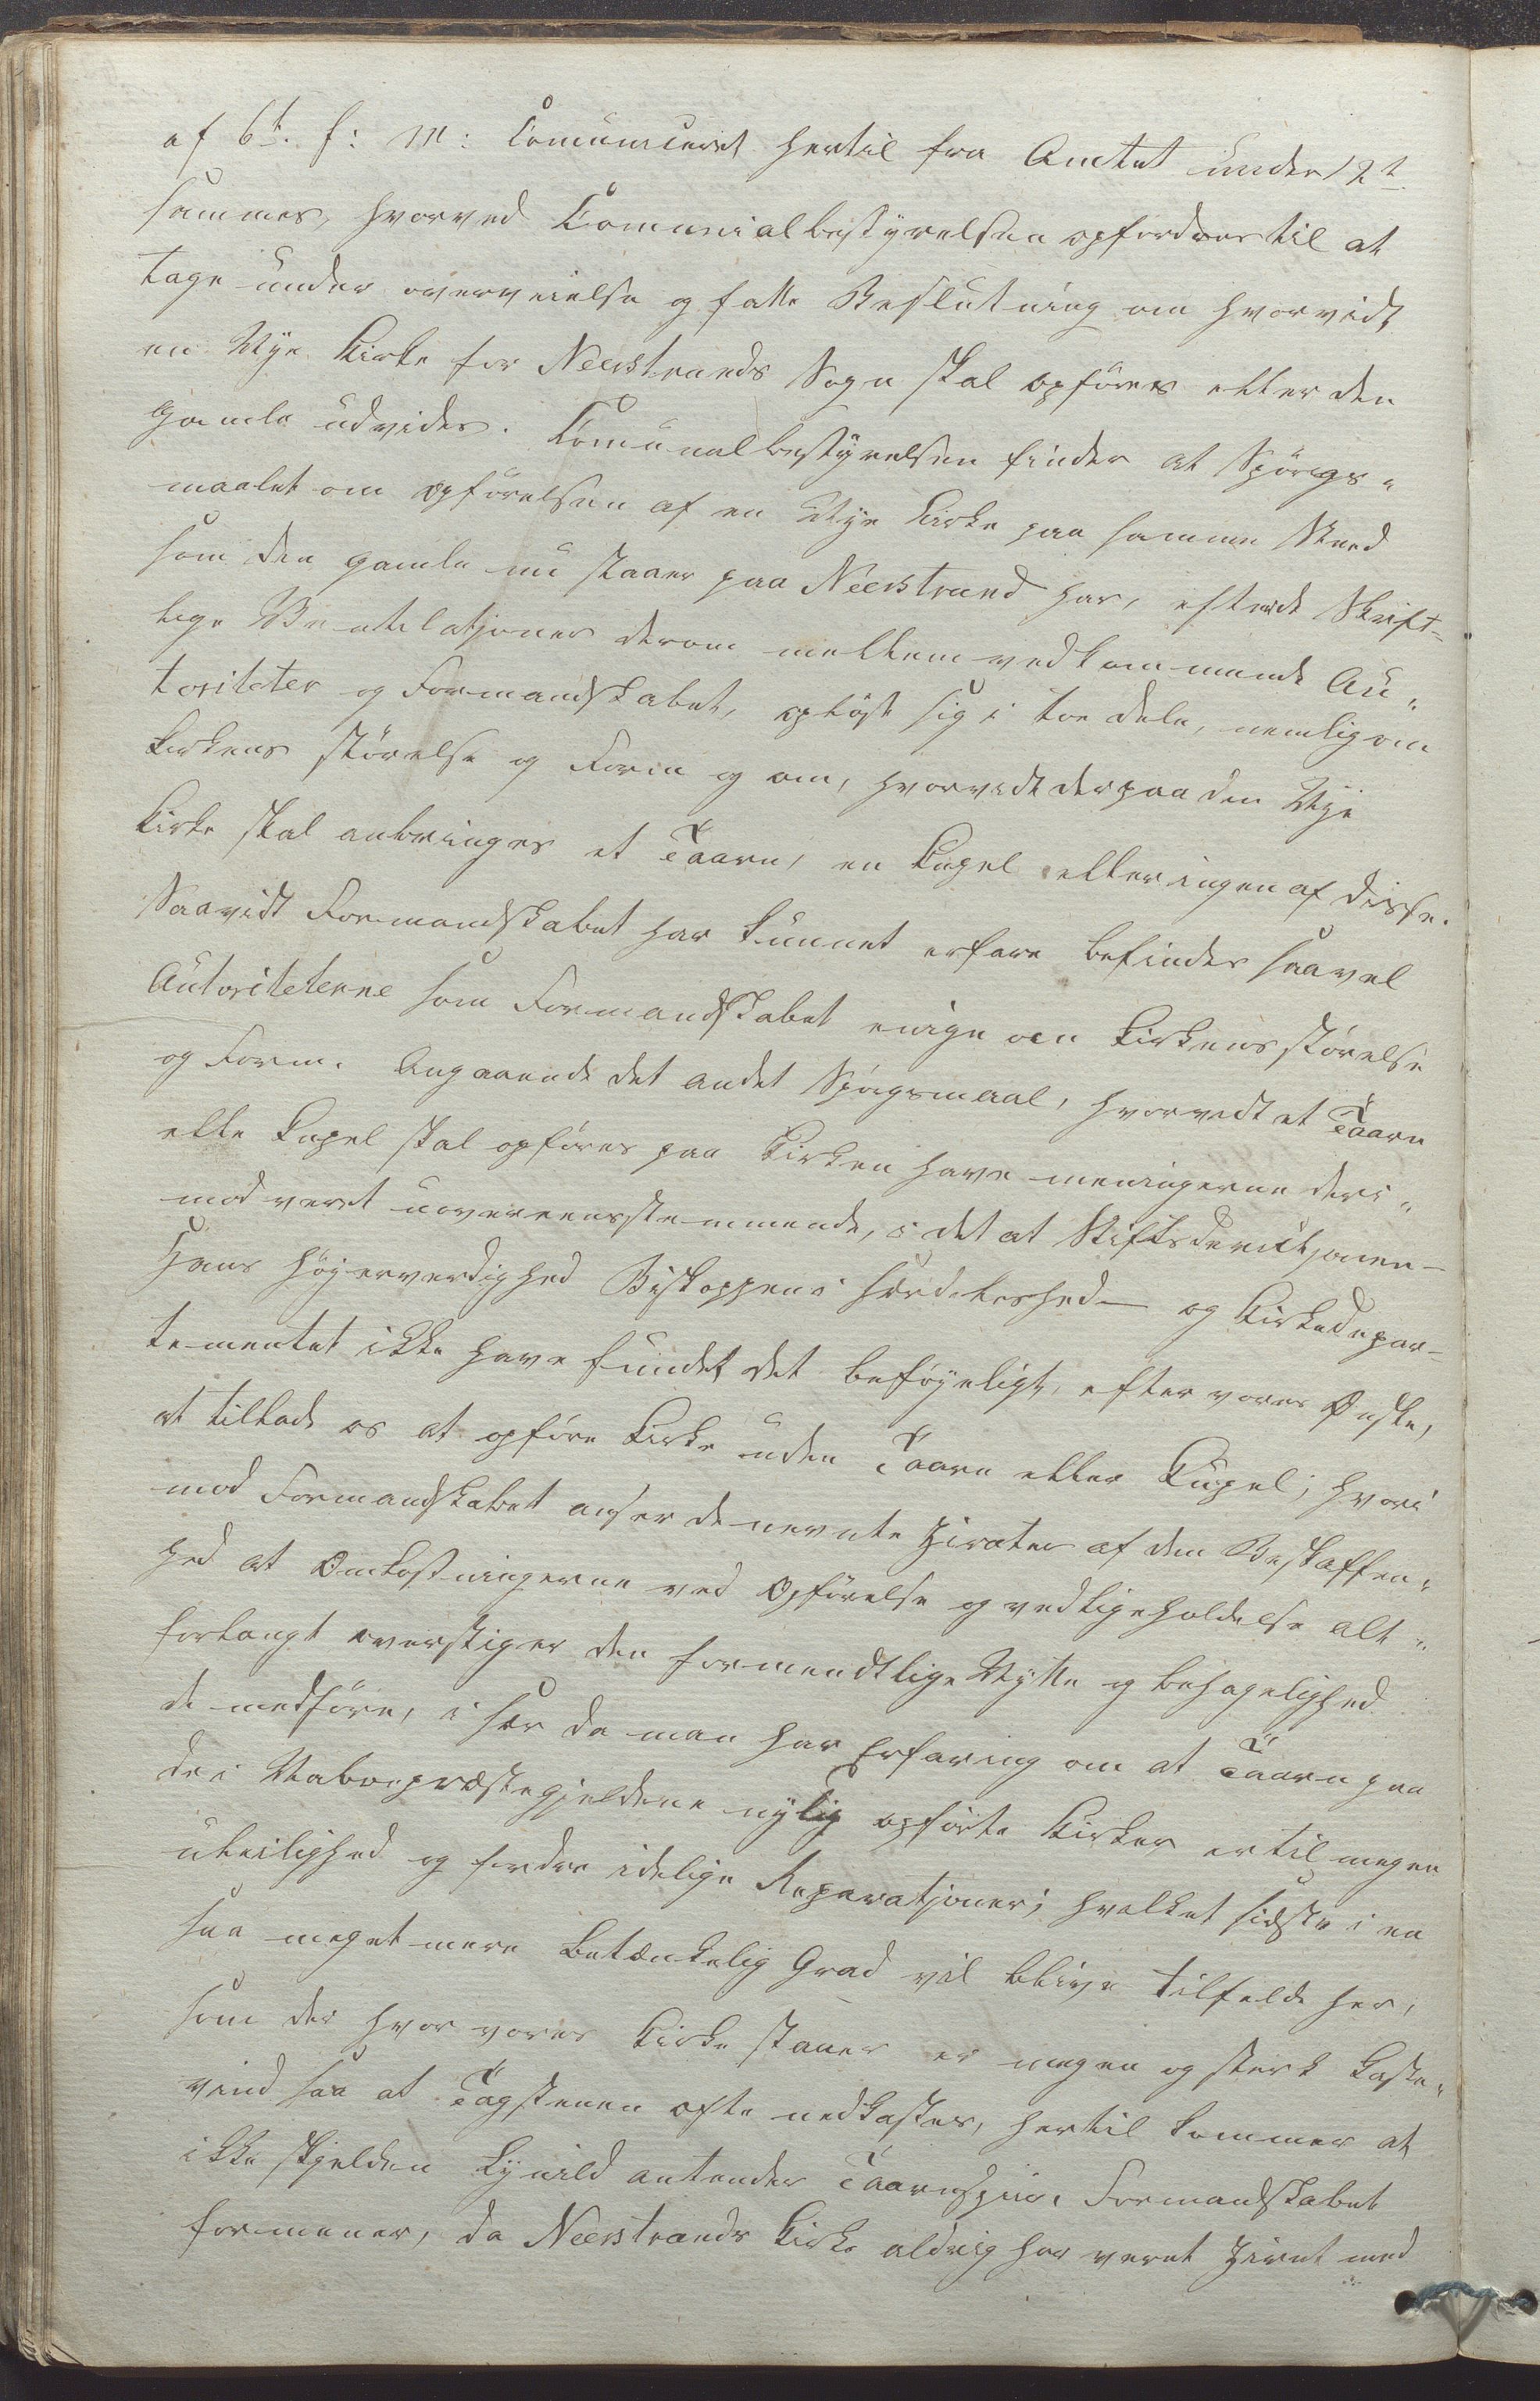 af 6t. f: M: Comuniceret hertil fra Amtet under 12t
sammes, hvorved Comunialbestyrelsen opfordres til at
tage under overveielse og fatte Beslutning om hvorvidt
en Nye Kirke for Neerstrands Sogn skal opføres eller den
gamle udvides. Comunalbestyrelsen finder at Spørgs„
maalet om opførelsen af en Nye Kirke paa samme Sted
som den gamle nu staaer paa Neerstrand har, efter de Skrift-
lige Ventilatjoner derom mellem vedkommende Au„
toriteter og Formandskabet, opløst sig i toe dele, nemlig om
Kirkens størelse og Form og om, hvorvidt der paa den Nye
Kirke skal anbringes et Taarn, en Kupel eller ingen af disse.
Saavidt Formandskabet har kunnet erfare befindes saavel
Autoriteterne som Formandskabet enige om Kirkens størelse
og Form. Angaaende det andet Spørgsmaal, hvorvidt et Taarn
elle Kupel skal opføres paa Kirken have meningerne deri„
mod veret uovereensstemmende, i det at Stiftsdirektjonen -
Hans Høyerverdighed Biskoppen i Særdeleshed - og Kirkedepar-
tementet ikke have fundet det beføyeligt, efter vores Ønske,
at tillade os at opføre Kirke uden Taarn eller Kupel; hvori
mod Formandskabet anser de nevnte Zirater af den Beskaffen„
hed at Omkostningerne ved Opførelse og vedligeholdelse alt„
forlangt overstiger den formendtlige Nytte og behagelighed
de medføre, i sær da man har Erfaring om at Taarn paa
de i Naboepræstegjeldene nylig opførte Kirker er til megen
uleilighed og fordre idelige Reparatjoner; hvilket sidste i en
saa meget mere betænkelig Grad vil blive tilfelde her,
som der hvor vores Kirke staaer er megen og sterk Kaste„
vind saa at Tagstenen ofte nedkastes, hertil kommer at
ikke skjelden Lynild antender Taarnspiir. Formandskabet
formener, da Neerstrands Kirke aldrig har veret Ziret med